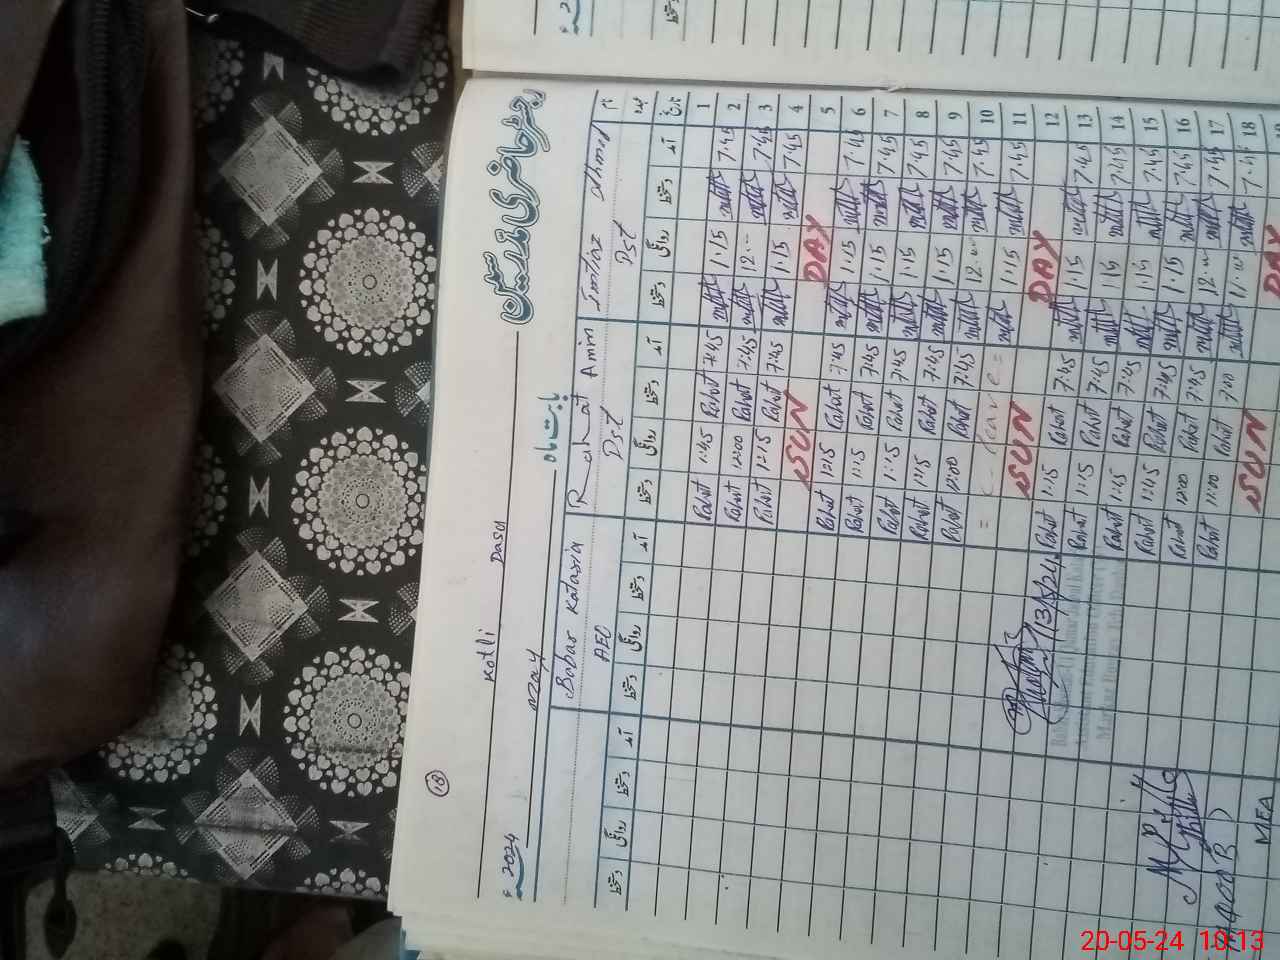 رجسٹر حاضری مدرسین
Kotli Dasu
بابت ماہ May 2024ء
18
نام Imtiaz Ahmed Rahat Amin Babar Kataria
عہدہ Pst Pst AEO
تاریخ آمد دستخط روانگی دستخط آمد دستخط روانگی دستخط آمد دستخط روانگی دستخط آمد دستخط روانگی دستخط
1
2 7:45 1:15 7:45 Rahat 1:45 Rahat
3 7:45 12:00 7:45 Rahat 12:00 Rahat
4 7:45 1:15 7:45 Rahat 1:15 Rahat
5 SUN DAY
6 7:45 1:15 7:45 Rahat 1:15 Rahat
7 7:45 1:15 7:45 Rahat 1:15 Rahat
8 7:45 1:15 7:45 Rahat 1:15 Rahat
9 7:45 1:15 7:45 Rahat 1:15 Rahat
10 7:45 12:00 7:45 Rahat 12:00 Rahat
11 7:45 1:15 = Leave =
12 SUN DAY
13 7:45 1:15 7:45 Rahat 1:15 Rahat 13/5/24
14 7:45 1:15 7:45 Rahat 1:15 Rahat
15 7:45 1:15 7:45 Rahat 1:15 Rahat
16 7:45 1:15 7:45 Rahat 1:45 Rahat
17 7:45 12:00 7:45 Rahat 12:00 Rahat
18 7:45 11:00 7:00 Rahat 11:00 Rahat
SUN DAY
MEA
20-05-24 10:13